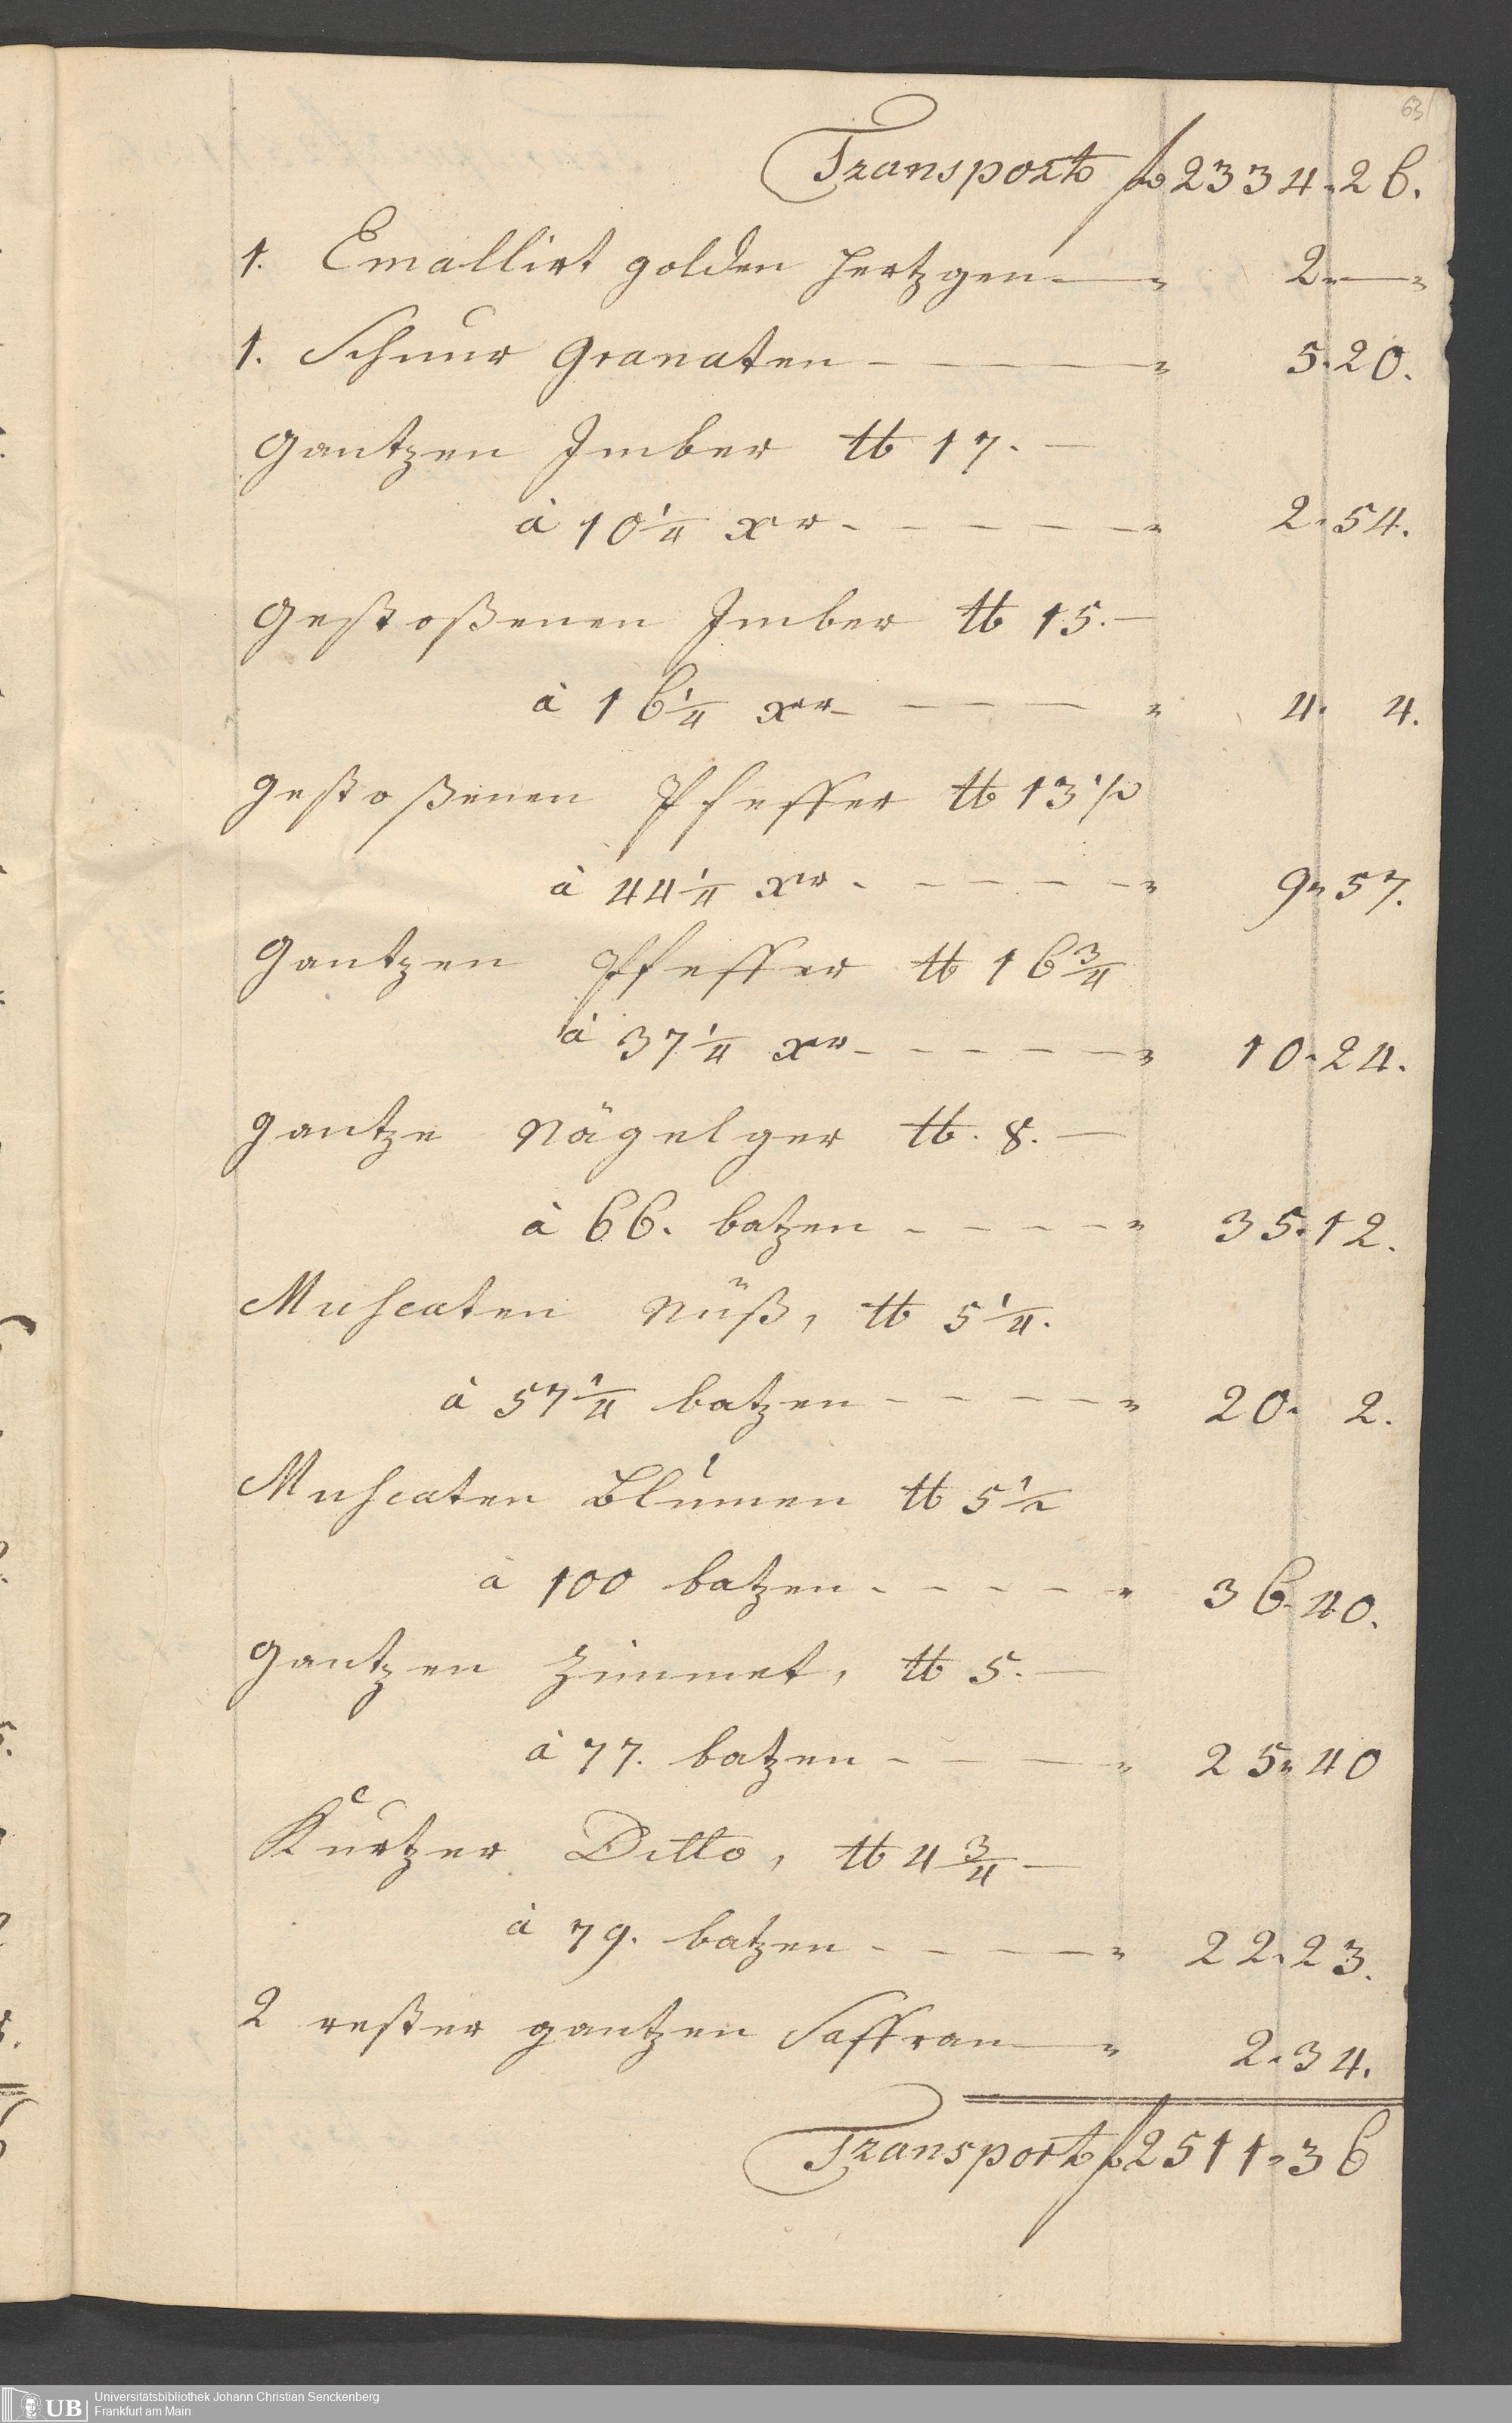 63
Transport f 2334. 26.
1. Emallirt golden Hertzgen — " 2. — "
1. Schnur Granaten — — — " 5. 20.
Gantzen Imber ℔ 17. —
à 10 1/4 xr - - - - " 2. 54.
Gestoßenen Imber ℔ 15. —
à 16 1/4 xr - - - - " 4. 4.
Gestoßenen Pfeffer ℔ 13 1/2
à 44 1/4 xr - - - - " 9. 57.
Gantzen Pfeffer ℔ 16 3/4
à 37 1/4 xr - - - - " 10. 24.
Gantze Nägelger ℔. 8. —
à 66. batzen - - - - " 35. 12.
Muscaten Nüß, ℔ 5 1/4.
à 57 1/4 batzen - - - - " 20. 2.
Muscaten Blumen ℔ 5 1/2
à 100 batzen - - - - " 36. 40.
Gantzen Zimmet, ℔ 5. —
à 77. batzen - - - " 25. 40
Kurtzer Ditto, ℔ 4 3/4 —
à 79. batzen - - - " 22. 23.
2 rester gantzen Saffran — " 2. 34.
Transport f 2511. 36
UB Universitätsbibliothek Johann Christian Senckenberg
Frankfurt am Main